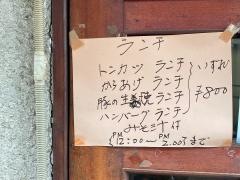 ランチ
トンカツ ランチ
からあげ ランチ
豚の生姜焼 ランチ
ハンバーグ ランチ
いずれ
¥800
みそ汁付
PM 12:00〜PM 2.00まで